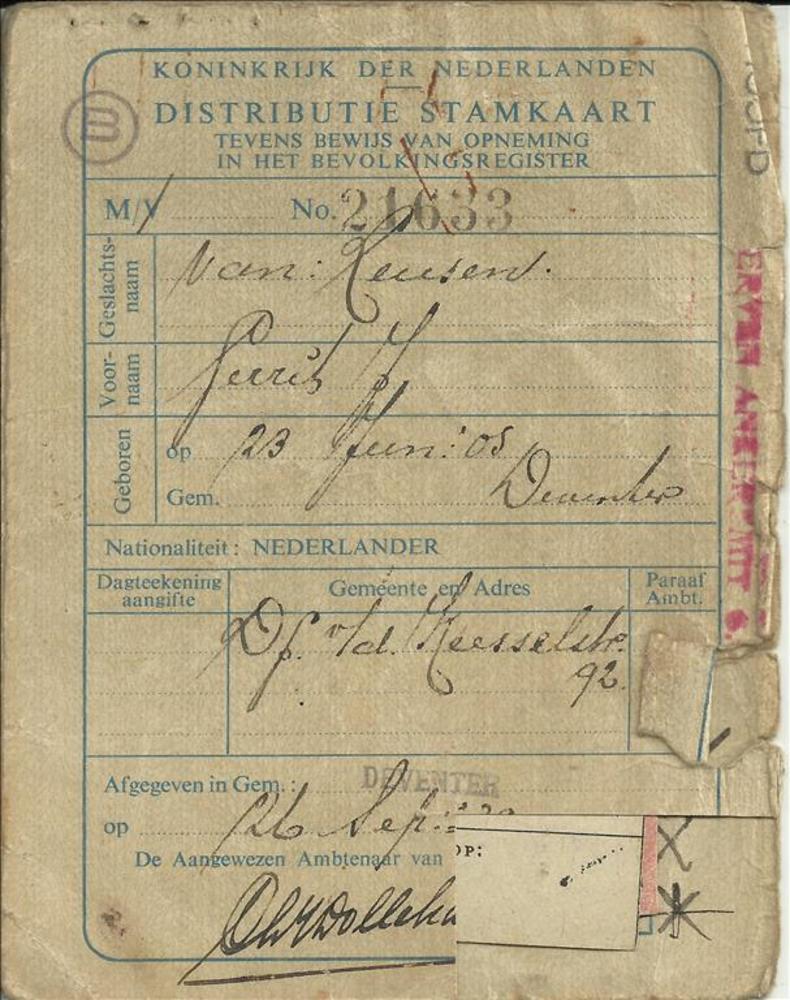 KONINKRIJK DER NEDERLANDEN
B
DISTRIBUTIE STAMKAART
TEVENS BEWIJS VAN OPNEMING
IN HET BEVOLKINGSREGISTER
M/V No. 21633
Geslachts-
naam
van: Leusen.
Voor-
naam
Gerrit J
Geboren
op 23 Juni: 05
Gem. Deventer
Nationaliteit: NEDERLANDER
Dagteekening
aangifte
Gemeente en Adres
Paraaf
Ambt.
Df. v/d. Keesselstr.
92.
Afgegeven in Gem.: DEVENTER
op 26 Sep:
De Aangewezen Ambtenaar van
OP: